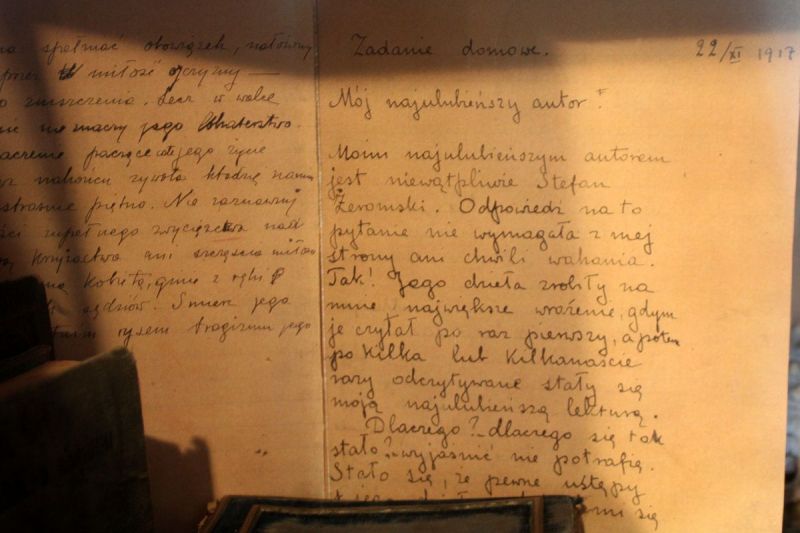 spełniać obowiązek, nałożony
przez miłość ojczyzny —
zniszczenia. Lecz w walce
nie znaczy jego bohaterstwo.
jego życie
żywota kładzie
straszne piętno. Nie zaznawszy
zupełnego zwycięstwa nad
ani szczęścia
kobietą, ginie z ręki
Śmierć jego
rysem tragizmu jego
Zadanie domowe. 22/XI 1917
Mój najulubieńszy autor.
Moim najulubieńszym autorem
jest niewątpliwie Stefan
Żeromski. Odpowiedź na to
pytanie nie wymagała z mej
strony ani chwili wahania.
Tak! Jego dzieła zrobiły na
mnie największe wrażenie, gdym
je czytał po raz pierwszy, a potem
po kilka lub kilkanaście
razy odczytywane stały się
moją najulubieńszą lekturą.
Dlaczego? dlaczego się tak
stało? wyjaśnić nie potrafię.
Stało się, że pewne ustępy
się